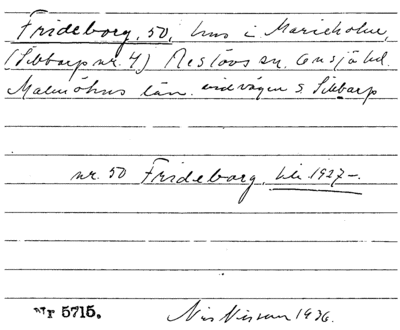 Frideborg, 50, hus i Marieholm,
(Sibbarp nr. 4) Reslövs sn. Onsjö hd.
Malmöhus län. vid vägen S. Sibbarp
nr. 50 Frideborg, 1927-.
Nr 5715. Nils Nilsson 1936.